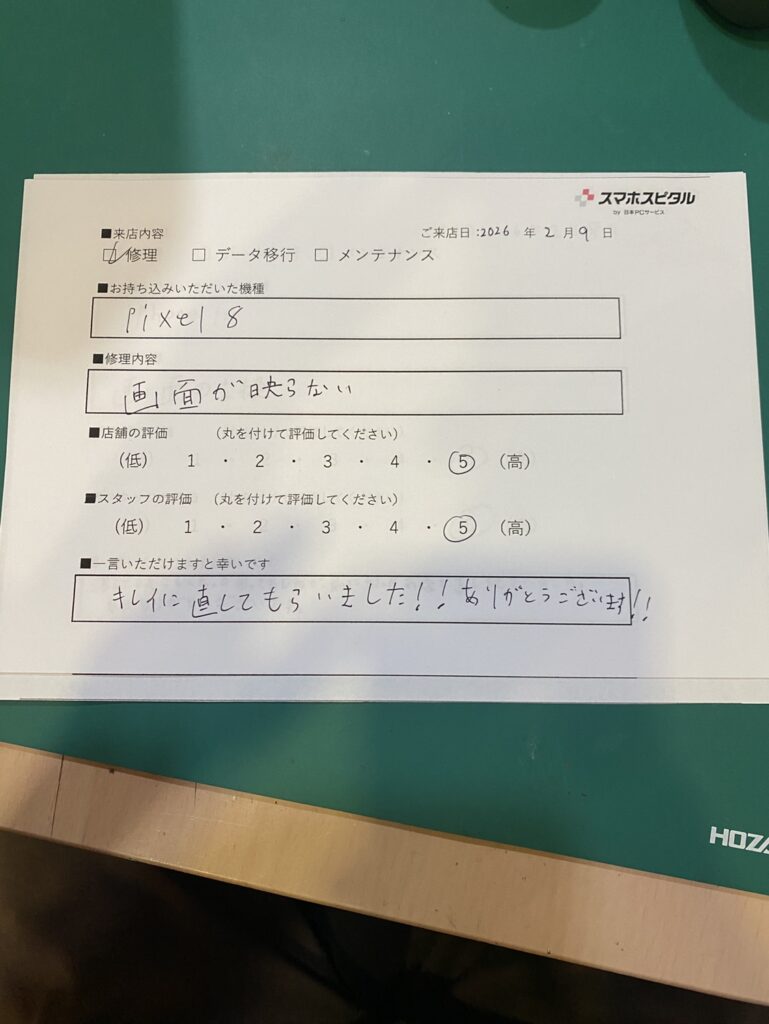 スマホスピタル
by 日本PCサービス
■来店内容
ご来店日:2026 年 2 月 9 日
☑ 修理 □ データ移行 □ メンテナンス
■お持ち込みいただいた機種
Pixel 8
■修理内容
画面が映らない
■店舗の評価 （丸を付けて評価してください）
（低） 1 ・ 2 ・ 3 ・ 4 ・ 5 （高）
■スタッフの評価 （丸を付けて評価してください）
（低） 1 ・ 2 ・ 3 ・ 4 ・ 5 （高）
■一言いただけますと幸いです
キレイに直してもらいました!! ありがとうございます!!